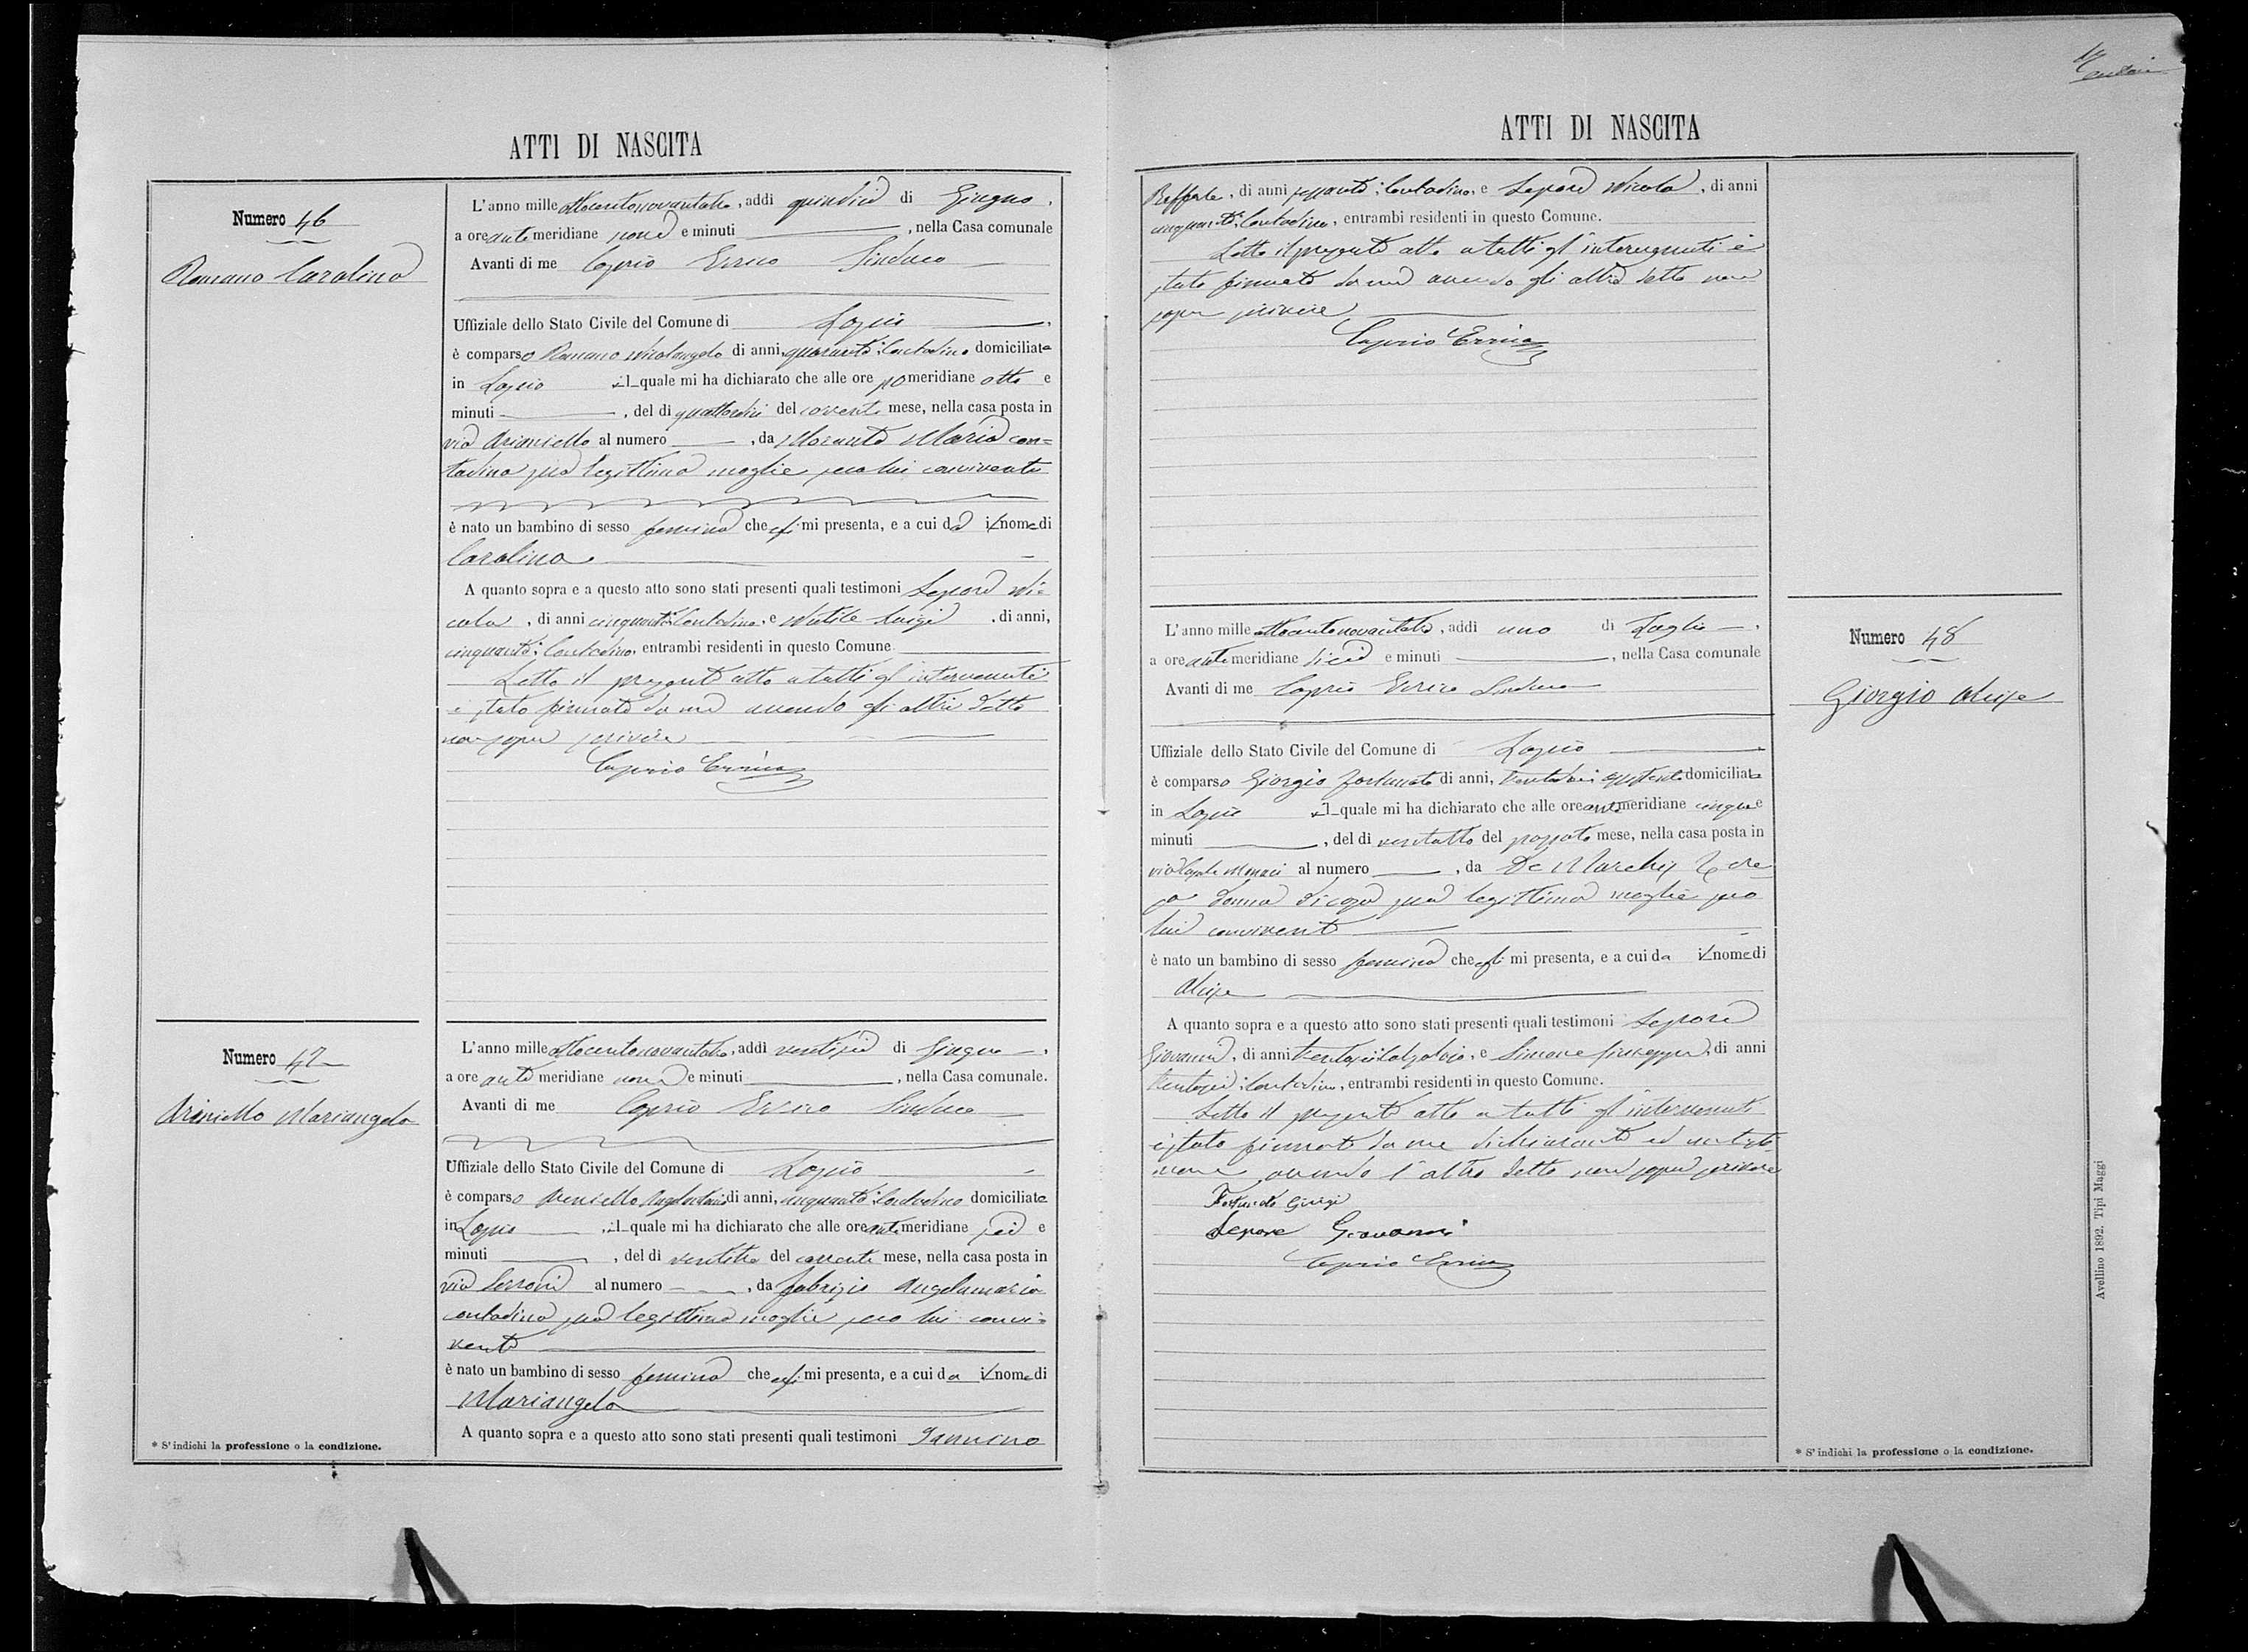 ATTI DI NASCITA
Numero 46
Romano Carolina
L'anno mille ottocentonovantatre, addì quindici di Giugno,
a ore antemeridiane nove e minuti , nella Casa comunale
Avanti di me Caprio Errico Sindaco
Uffiziale dello Stato Civile del Comune di Lapio.
è comparso Romano Nicolangelo di anni, quaranta: Contadino domiciliato
in Lapio il quale mi ha dichiarato che alle ore pomeridiane otto e
minuti , del dì quattordici del corrente mese, nella casa posta in
via Arianiello al numero , da Morante Maria con=
tadina sua legittima moglie seco lui convivente
è nato un bambino di sesso femina che egli mi presenta, e a cui dà il nome di
Carolina
A quanto sopra e a questo atto sono stati presenti quali testimoni Lepore Ni=
cola, di anni cinquanta: Contadino, e Luigi, di anni,
cinquanta: Contadino, entrambi residenti in questo Comune
Letto il presente atto a tutti gl'intervenuti
è stato firmato da me avendo gli altri detto
non saper scrivere
Caprio Errico
Numero 47
Mariangela
L'anno mille ottocentonovantatre, addì ventisei di Giugno,
a ore antemeridiane nove e minuti , nella Casa comunale.
Avanti di me Caprio Errico Sindaco
Uffiziale dello Stato Civile del Comune di Lapio
è comparso di anni, cinquanta: Contadino domiciliato
in Lapio, il quale mi ha dichiarato che alle ore antemeridiane sei e
minuti , del dì ventitre del corrente mese, nella casa posta in
via al numero , da Fabrizio Angelamaria
contadina sua legittima moglie seco lui convi=
vente
è nato un bambino di sesso femina che egli mi presenta, e a cui da il nome di
Mariangela
A quanto sopra e a questo atto sono stati presenti quali testimoni
* S'indichi la professione o la condizione.
ATTI DI NASCITA
Raffaele, di anni sessanta: Contadino, e Lepore Nicola, di anni
cinquanta: Contadino, entrambi residenti in questo Comune.
Letto il presente atto a tutti gl'intervenuti è
stato firmato da me avendo gli altri detto non
saper scrivere
Caprio Errico
Numero 48
Giorgio
L'anno mille ottocentonovantatre, addì uno di Luglio,
a ore antemeridiane dieci e minuti , nella Casa comunale
Avanti di me Caprio Errico Sindaco
Uffiziale dello Stato Civile del Comune di Lapio
è comparso Giorgio Fortunato di anni, domiciliato
in Lapio il quale mi ha dichiarato che alle ore antemeridiane cinque e
minuti , del dì ventotto del passato mese, nella casa posta in
via al numero , da De Marchis Tere
sa donna di casa sua legittima moglie seco
lui convivente
è nato un bambino di sesso femina che egli mi presenta, e a cui da il nome di
A quanto sopra e a questo atto sono stati presenti quali testimoni Lepore
Giovanni, di anni trentasei Calzolaio, e Simone Giuseppe, di anni
trentasei: Contadino, entrambi residenti in questo Comune.
Letto il presente atto a tutti gl'intervenuti
è stato firmato da me dichiarante ed un testi
mone avendo l'altro detto non saper scrivere
Fortunato Giorgi
Lepore Giovanni
Caprio Errico
* S'indichi la professione o la condizione.
Avellino 1892. Tipi Maggi